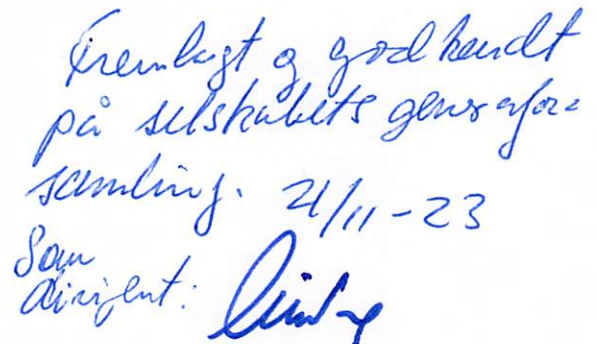 Fremlagt og godkendt
på selskabets generalfor=
samling. 21/11-23
Som
dirigent: